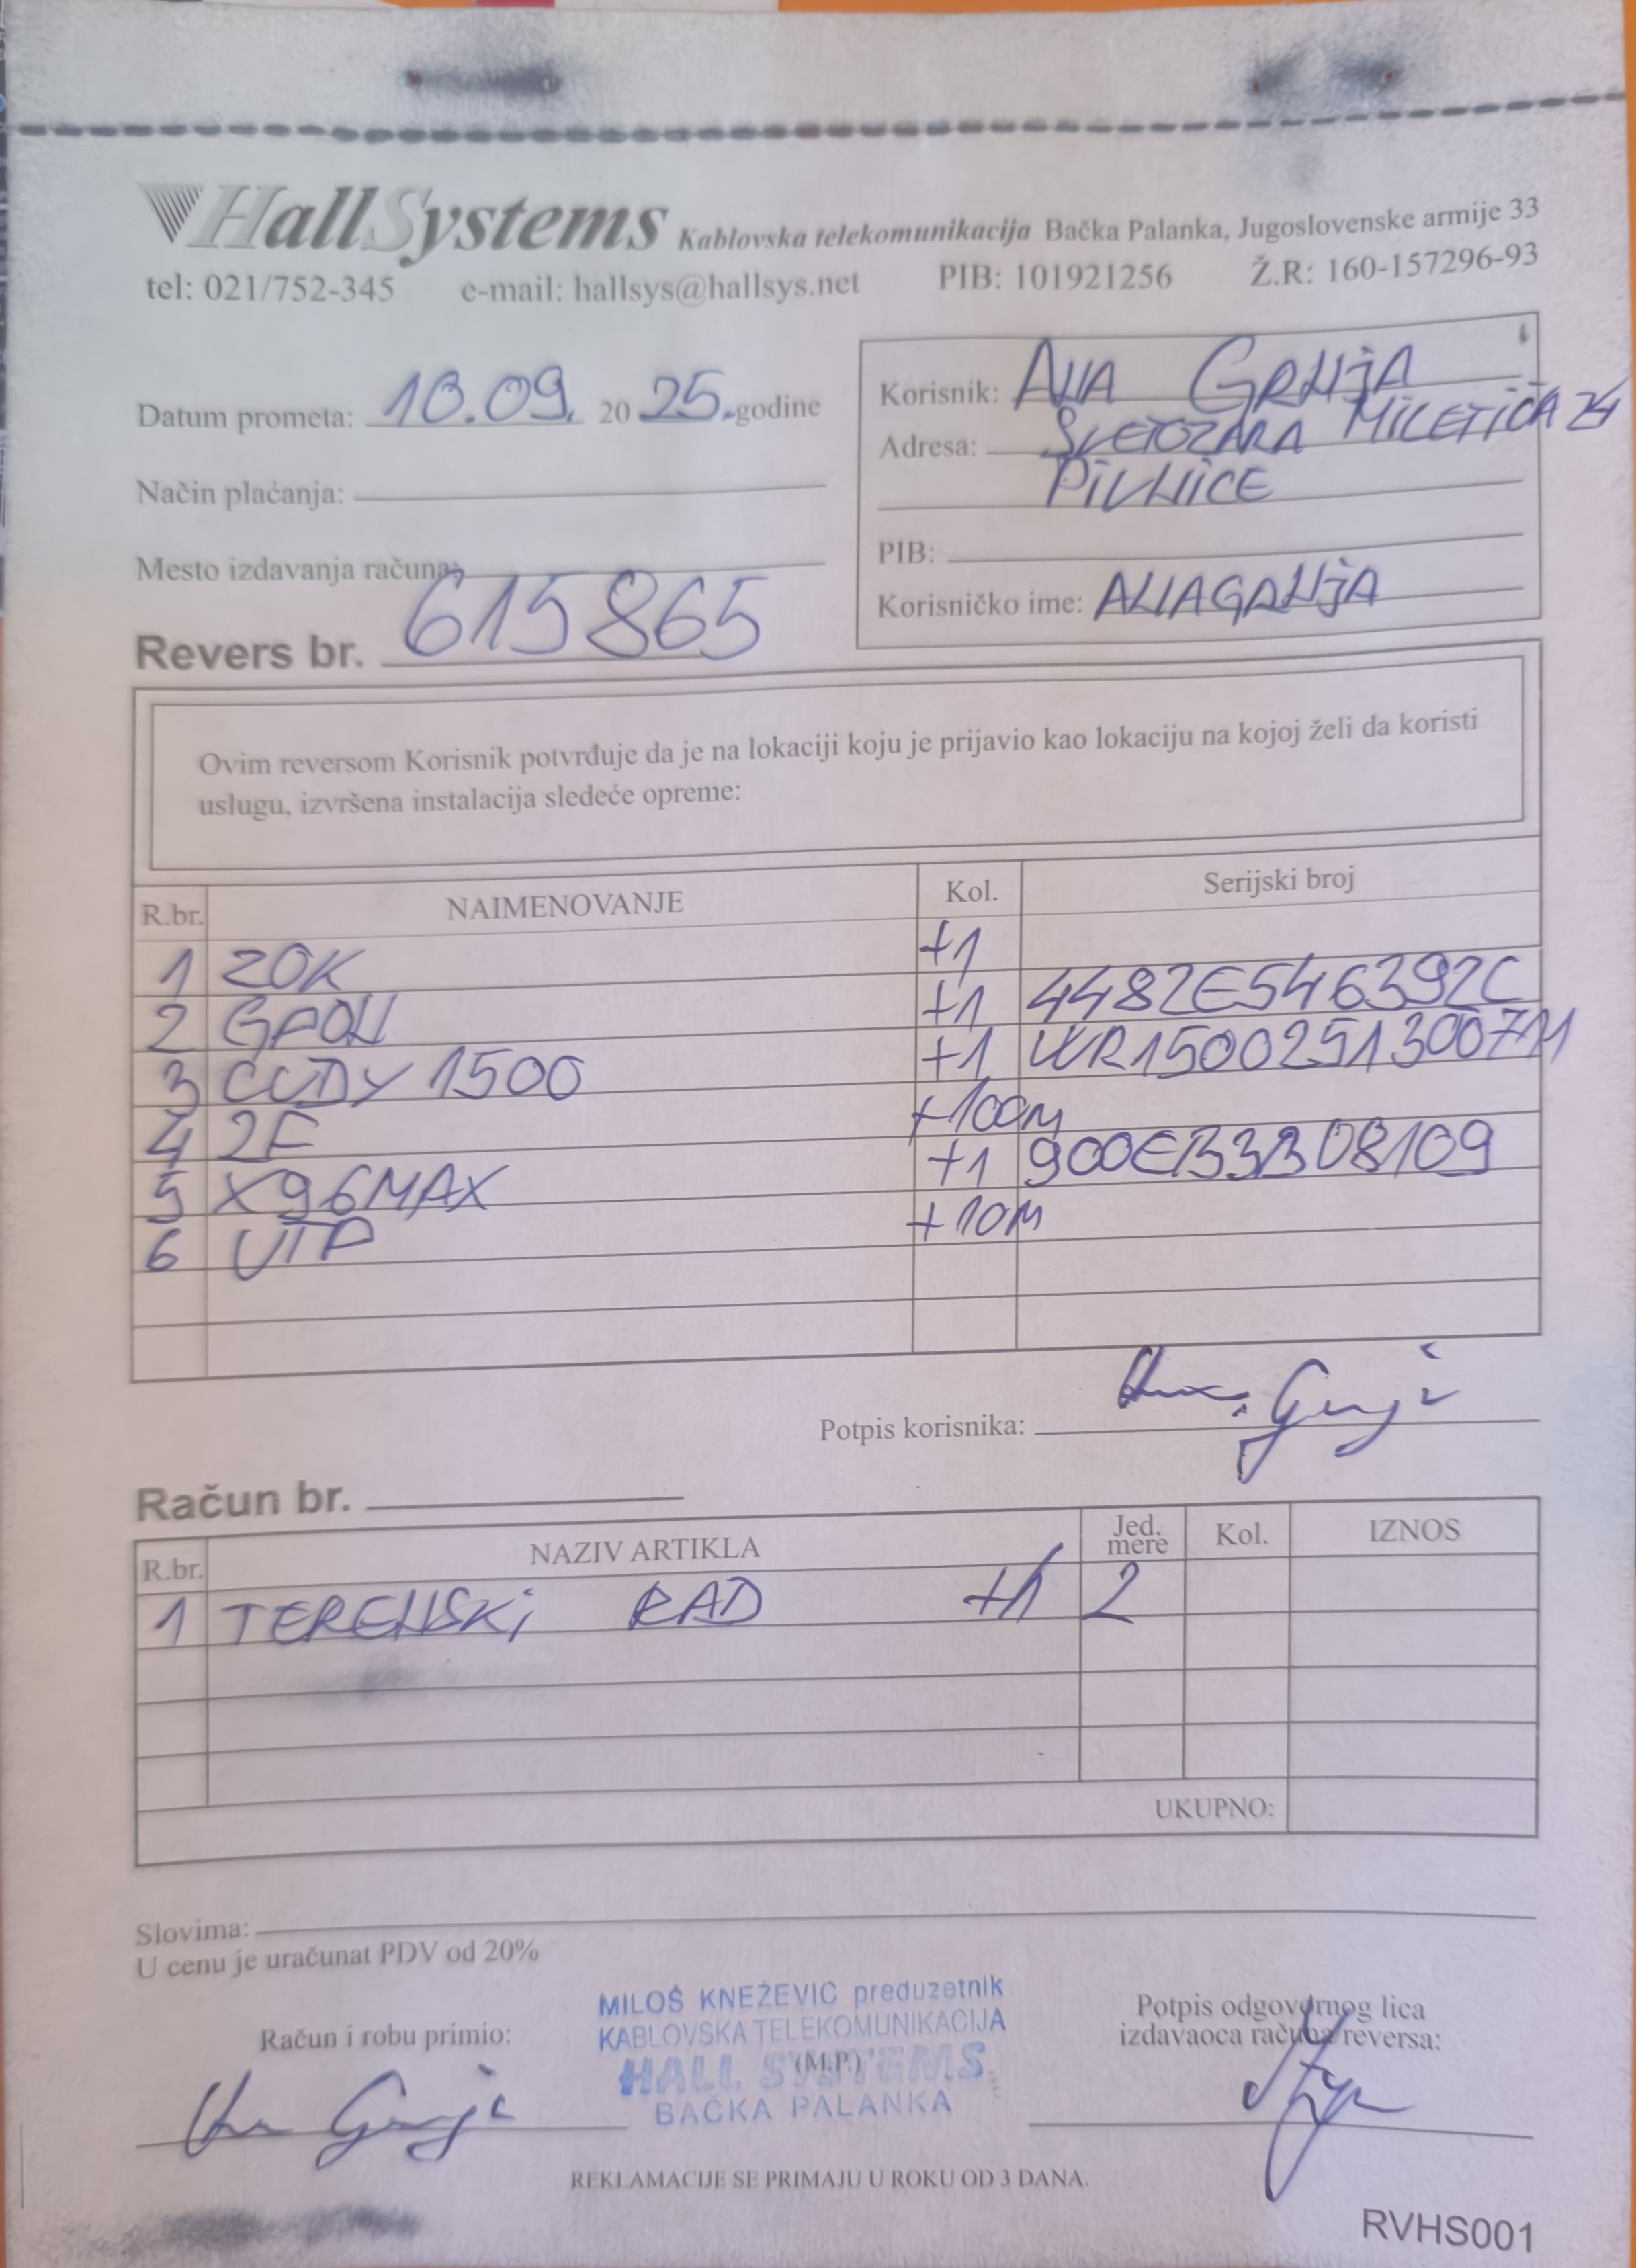 HallSystems Kablovska telekomunikacija Bačka Palanka, Jugoslovenske armije 33
tel: 021/752-345 e-mail: hallsys@hallsys.net PIB: 101921256 Ž.R: 160-157296-93
Datum prometa: 10.09. 2025. godine
Način plaćanja:
Mesto izdavanja računa:
Revers br. 615865
Korisnik: ANA GRNJA
Adresa: SVETOZARA MILETIĆA
PIVNICE
PIB:
Korisničko ime: ANAGRNJA
Ovim reversom Korisnik potvrđuje da je na lokaciji koju je prijavio kao lokaciju na kojoj želi da koristi
uslugu, izvršena instalacija sledeće opreme:
R.br. NAIMENOVANJE Kol. Serijski broj
1 ZOK +1
2 GPON +1 4482E546392C
3 CUDY 1500 +1
4 2F +100M
5 X96MAX +1 900EB3B08109
6 UTP +10M
Potpis korisnika:
Račun br.
R.br. NAZIV ARTIKLA Jed. mere Kol. IZNOS
1 TERENSKI RAD 2
UKUPNO:
Slovima:
U cenu je uračunat PDV od 20%
Račun i robu primio:
MILOŠ KNEŽEVIĆ preduzetnik
KABLOVSKA TELEKOMUNIKACIJA
HALL SYSTEMS
(M.P.)
BAČKA PALANKA
Potpis odgovornog lica
izdavaoca računa reversa:
REKLAMACIJE SE PRIMAJU U ROKU OD 3 DANA.
RVHS001